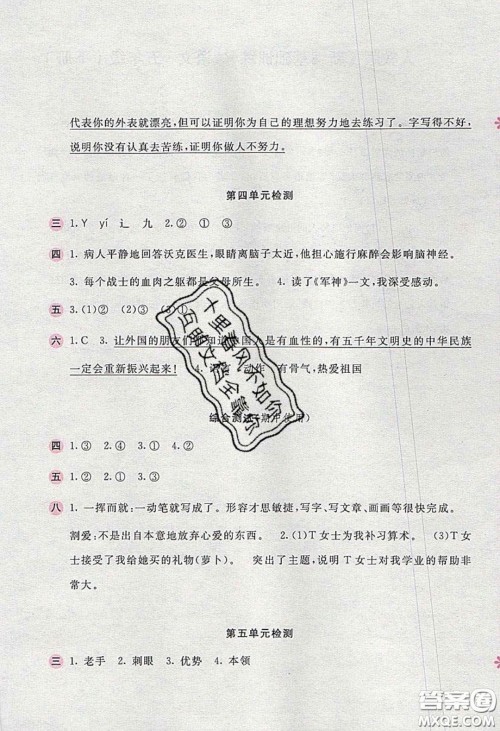 代表你的外表就漂亮,但可以证明你为自己的理想努力地去练习了。字写得不好,
说明你没有认真去苦练,证明你做人不努力。
第四单元检测
三 1. Y yí 辶 九 2. ② ① ③
四 1. 病人平静地回答沃克医生,眼睛离脑子太近,他担心施行麻醉会影响脑神经。
3. 每个战士的血肉之躯都是父母所生。 4. 读了《军神》一文,我深受感动。
五 3. (1)② (2)③
六 1. C 3. 让外国的朋友们 人是有血性的,有五千年文明史的中华民族
一定会重新振兴起来! 有骨气,热爱祖国
综合测试
四 1. ③ 2. ④ 3. ① 4. ②
五 1. ② 2. ①
八 1. 一挥而就:一动笔就写成了。形容才思敏捷,写字、写文章、画画等很快完成。
割爱:不是出自本意地放弃心爱的东西。 2. (1)T 女士为我补习算术。 (3)T 女
士接受了我给她买的礼物(萝卜)。 突出了主题,说明 T 女士对我学业的帮助非
常大。
第五单元检测
三 1. 老手 2. 刺眼 3. 优势 4. 本领
十里春风不如你
互邮文档全靠你
答案圈
MXQE.COM